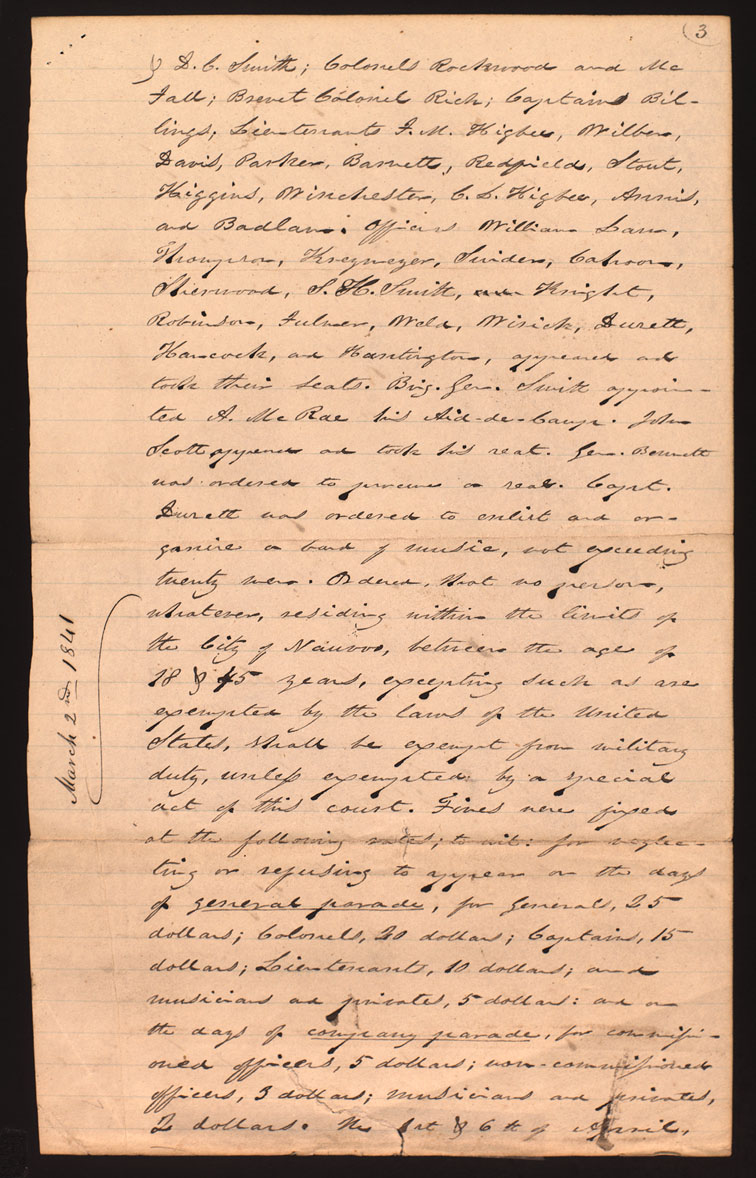 3
& D. C. Smith; Colonels Rockwood and Mc
Fall; Brevet Colonel Rich; Captains Bil-
lings; Lieutenants F. M. Higbee, Wilber,
Davis, Parker, Barnett, Redfield, Stout,
Higgins, Winchester, C. L. Higbee, Annis,
and Badlam. Officers William Law,
Thompson, Kreymeyer, Snider, Cahoon,
Sherwood, S. H. Smith, and Knight,
Robinson, Fulmer, Weld, Wisick, Durett,
Hancock, and Huntington, appeared and
took their seats. Brig. Gen. Smith appoin-
ted A. McRae his Aid-de-Camp. John
Scott appeared and took his seat. Gen. Bennett
was ordered to procure a seal. Capt.
Durett was ordered to enlist and or-
ganize a band of music, not exceeding
twenty men. Ordered, that no person,
whatever, residing within the limits of
the City of Nauvoo, between the age of
18 & 45 years, excepting such as are
exempted by the laws of the United
States, shall be exempt from military
duty, unless exempted by a special
act of this court. Fines were fixed
at the following rates; to wit: for neglec-
ting or refusing to appear on the days
of general parade, for Generals, 25
dollars; Colonels, 20 dollars; Captains, 15
dollars; Lieutenants, 10 dollars; and
musicians and privates, 5 dollars: and on
the days of company parade, for commissi-
oned officers, 5 dollars; non-commissioned
officers, 3 dollars; musicians and privates,
2 dollars. The 1st & 6th of April,
March 2nd 1841